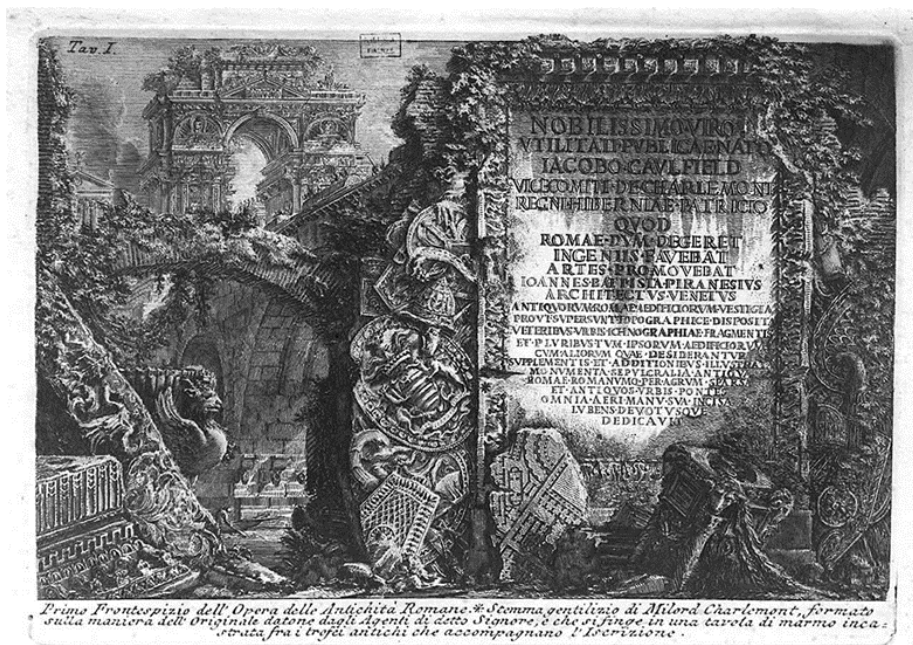 Tav. I.
NOBILISSIMO·VIRO
VTILITATI·PVBLICAE·NATO
IACOBO·CAVLFIELD
VICECOMITI·DE·CHARLEMONT
REGNI·HIBERNIAE·PATRICIO
QVOD
ROMAE·DVM·DEGERET
INGENIIS·FAVEBAT
ARTES·PROMOVEBAT
IOANNES·BAPTISTA·PIRANESIVS
ARCHITECTVS·VENETVS
ANTIQVORVM·ROMAE·AEDIFICIORVM·VESTIGIA
PROVT·SVPERSVNT·TOPOGRAPHICE·DISPOSITA
VETERIBVS·VRBIS·ICHNOGRAPHIAE·FRAGMENTIS
ET·PLVRIBVS·TVM·IPSORVM·AEDIFICIORVM
CVM·ALIORVM·QVAE·DESIDERANTVR
SVPPLEMENTIS·ET·ADDITIONIBVS·ILLVSTRATA
MONVMENTA·SEPVLCRALIA·ANTIQVA
ROMAE·ROMANVMQ·PER·AGRVM·SPARSA
ET·ANTIQVOS·VRBIS·PONTES
OMNIA·AERI·MANV·SVA·INCISA
LVBENS·DEVOTVSQVE
DEDICAVIT
Primo Frontespizio dell' Opera delle Antichità Romane. * Stemma gentilizio di Milord Charlemont, formato
sulla maniera dell' Originale datone dagli Agenti di detto Signore, e che si finge in una tavola di marmo inca=
strata fra i trofei antichi che accompagnano l'Iscrizione.